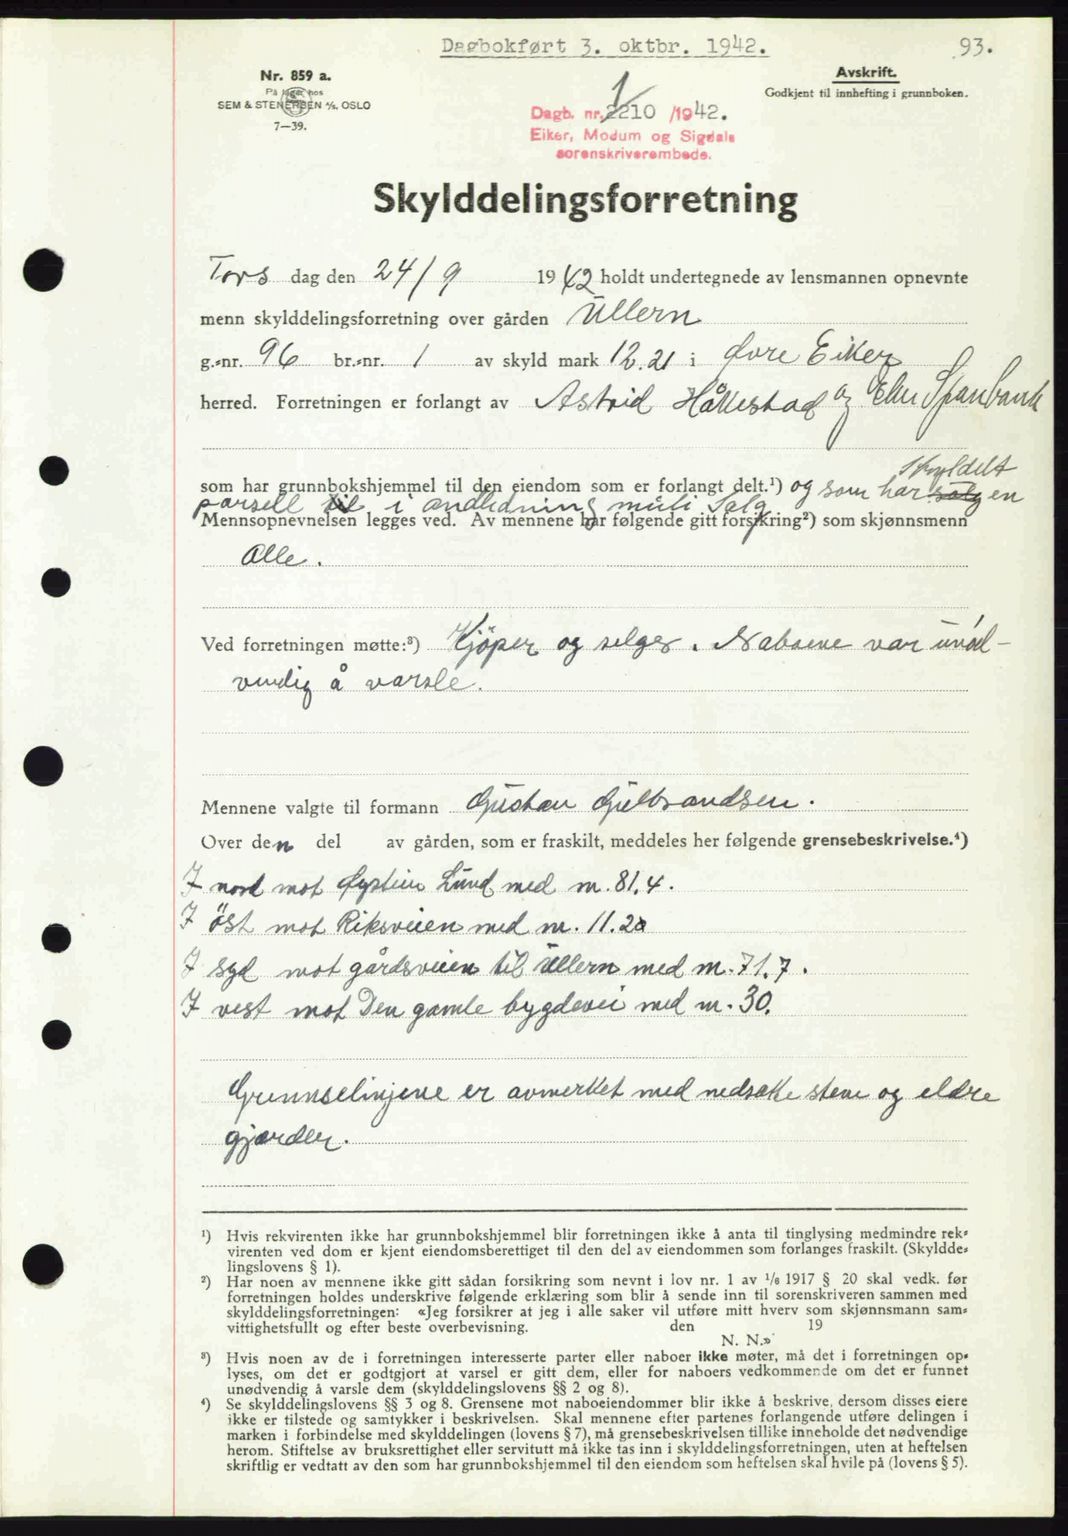 Dagbokført 3. oktbr. 1942.
93.
Nr. 859 a.
På lager hos
SEM & STENERSEN A/S, OSLO
7—39.
Avskrift.
Godkjent til innhefting i grunnboken.
1
Dagb. nr. 2210 /1942.
Eiker, Modum og Sigdals
sorenskriverembede.
Skylddelingsforretning
Tors dag den 24/9 1942 holdt undertegnede av lensmannen opnevnte
menn skylddelingsforretning over gården Ullern
g.-nr. 96 br.-nr. 1 av skyld mark 12.21 i Øvre Eiker
herred. Forretningen er forlangt av Astrid Håkestad og Eker Sparebank
skyldelt
som har grunnbokshjemmel til den eiendom som er forlangt delt.¹) og som har solg en
parsell til i andledning muli Salg
Mennsopnevnelsen legges ved. Av mennene har følgende gitt forsikring²) som skjønnsmenn
Alle.
Ved forretningen møtte:³) Kjöper og selger. Naboene var unöd-
vendig å varsle.
Mennene valgte til formann Gustav Gulbrandsen.
Over den del av gården, som er fraskilt, meddeles her følgende grensebeskrivelse.⁴)
I nord mot Øystein Lund med m. 81,4.
I öst mot Riksveien med m. 11.20
I syd mot gårdsveien til Ullern med m. 71,7.
I vest mot Den gamle bygdevei med m. 30.
Grennselinjene er avmerket med nedsatte stene og eldre
gjærder.
¹) Hvis rekvirenten ikke har grunnbokshjemmel blir forretningen ikke å anta til tinglysing medmindre rek-
virenten ved dom er kjent eiendomsberettiget til den del av eiendommen som forlanges fraskilt. (Skyldde-
lingslovens § 1).
²) Har noen av mennene ikke gitt sådan forsikring som nevnt i lov nr. 1 av 1/6 1917 § 20 skal vedk. før
forretningen holdes underskrive følgende erklæring som blir å sende inn til sorenskriveren sammen med
skylddelingsforretningen: «Jeg forsikrer at jeg i alle saker vil utføre mitt hverv som skjønnsmann sam-
vittighetsfullt og efter beste overbevisning. den 19
N. N.»
³) Hvis noen av de i forretningen interesserte parter eller naboer ikke møter, må det i forretningen op-
lyses, om det er godtgjort at varsel er gitt dem, eller for naboers vedkommende om det er funnet
unødvendig å varsle dem (skylddelingslovens §§ 2 og 8).
⁴) Se skylddelingslovens §§ 3 og 8. Grensene mot naboeiendommer blir ikke å beskrive, dersom disses eiere
ikke er tilstede og samtykker i beskrivelsen. Skal mennene efter partenes forlangende utføre delingen i
marken i forbindelse med skylddelingen (lovens § 7), må grensebeskrivelsen tillike inneholde det nødvendige
herom. Stiftelse av bruksrettighet eller servitutt må ikke tas inn i skylddelingsforretningen, uten at heftelsen
skriftlig er vedtatt av den som har grunnbokshjemmel til den eiendom som heftelsen skal hvile på (lovens § 5).